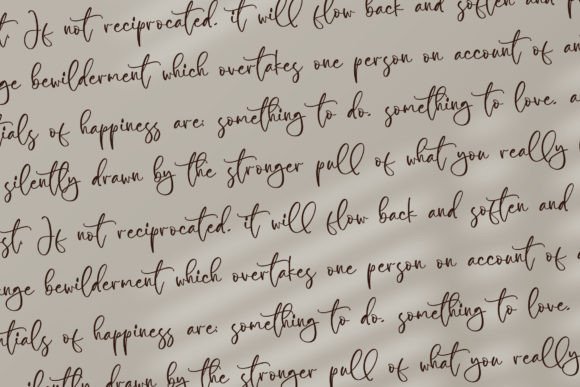 st. If not reciprocated, it will flow back and soften and p
nge bewilderment which overtakes one person on account of an
ntials of happiness are: something to do, something to love, a
silently drawn by the stronger pull of what you really
st. If not reciprocated, it will flow back and soften and
nge bewilderment which overtakes one person on account of a
ntials of happiness are: something to do, something to love,
silently drawn by the stronger pull of what you really